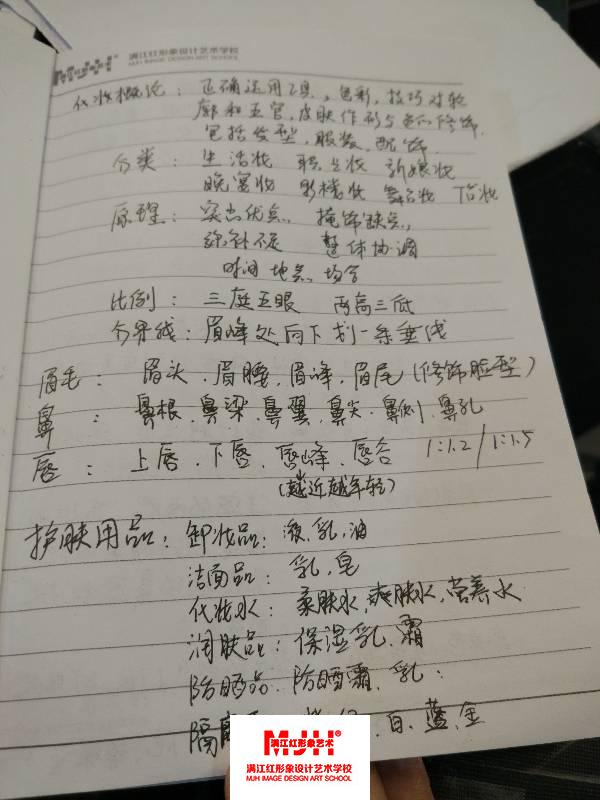 MJH 满江红形象设计艺术学校
MJH IMAGE DESIGN ART SCHOOL
化妆概论：正确运用工具，色彩，技巧对轮
廓和五官，皮肤作形与色的修饰.
包括发型，服装，配饰.
分类：生活妆 职业妆 新娘妆
晚宴妆 影楼妆 舞台妆 T台妆
原理：突出优点 掩饰缺点
弥补不足 整体协调
时间 地点 场合
比例：三庭五眼 两高三低
分界线：眉峰处向下划一条垂线
眉毛：眉头.眉腰.眉峰.眉尾(修饰脸型)
鼻：鼻根.鼻梁.鼻翼.鼻尖.鼻侧.鼻孔
唇：上唇.下唇.唇峰.唇谷 1:1.2/1:1.5
(越近越年轻)
护肤用品：卸妆品：液.乳.油
洁面品：乳.皂
化妆水：柔肤水，爽肤水，营养水
润肤品：保湿乳.霜
防晒品 防晒霜.乳
隔 白.蓝.金
MJH 满江红形象艺术
满江红形象设计艺术学校
MJH IMAGE DESIGN ART SCHOOL